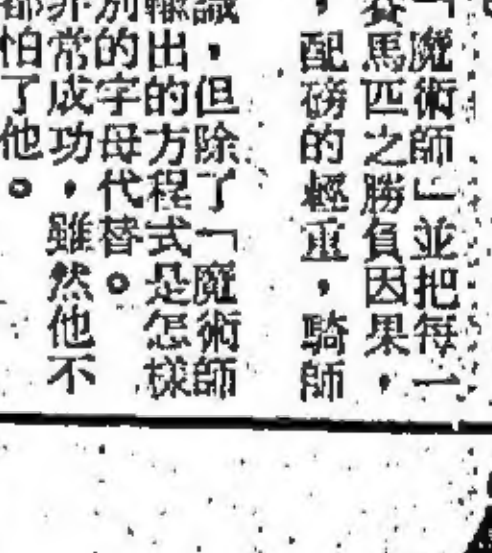 魔術師」並把每一
賽馬匹之勝負因果，
，配磅的輕重，騎師
識，但除了「魔術師
輸出的方程式是怎樣
別的字母代替。
非常成功，雖然他不
都怕了他。